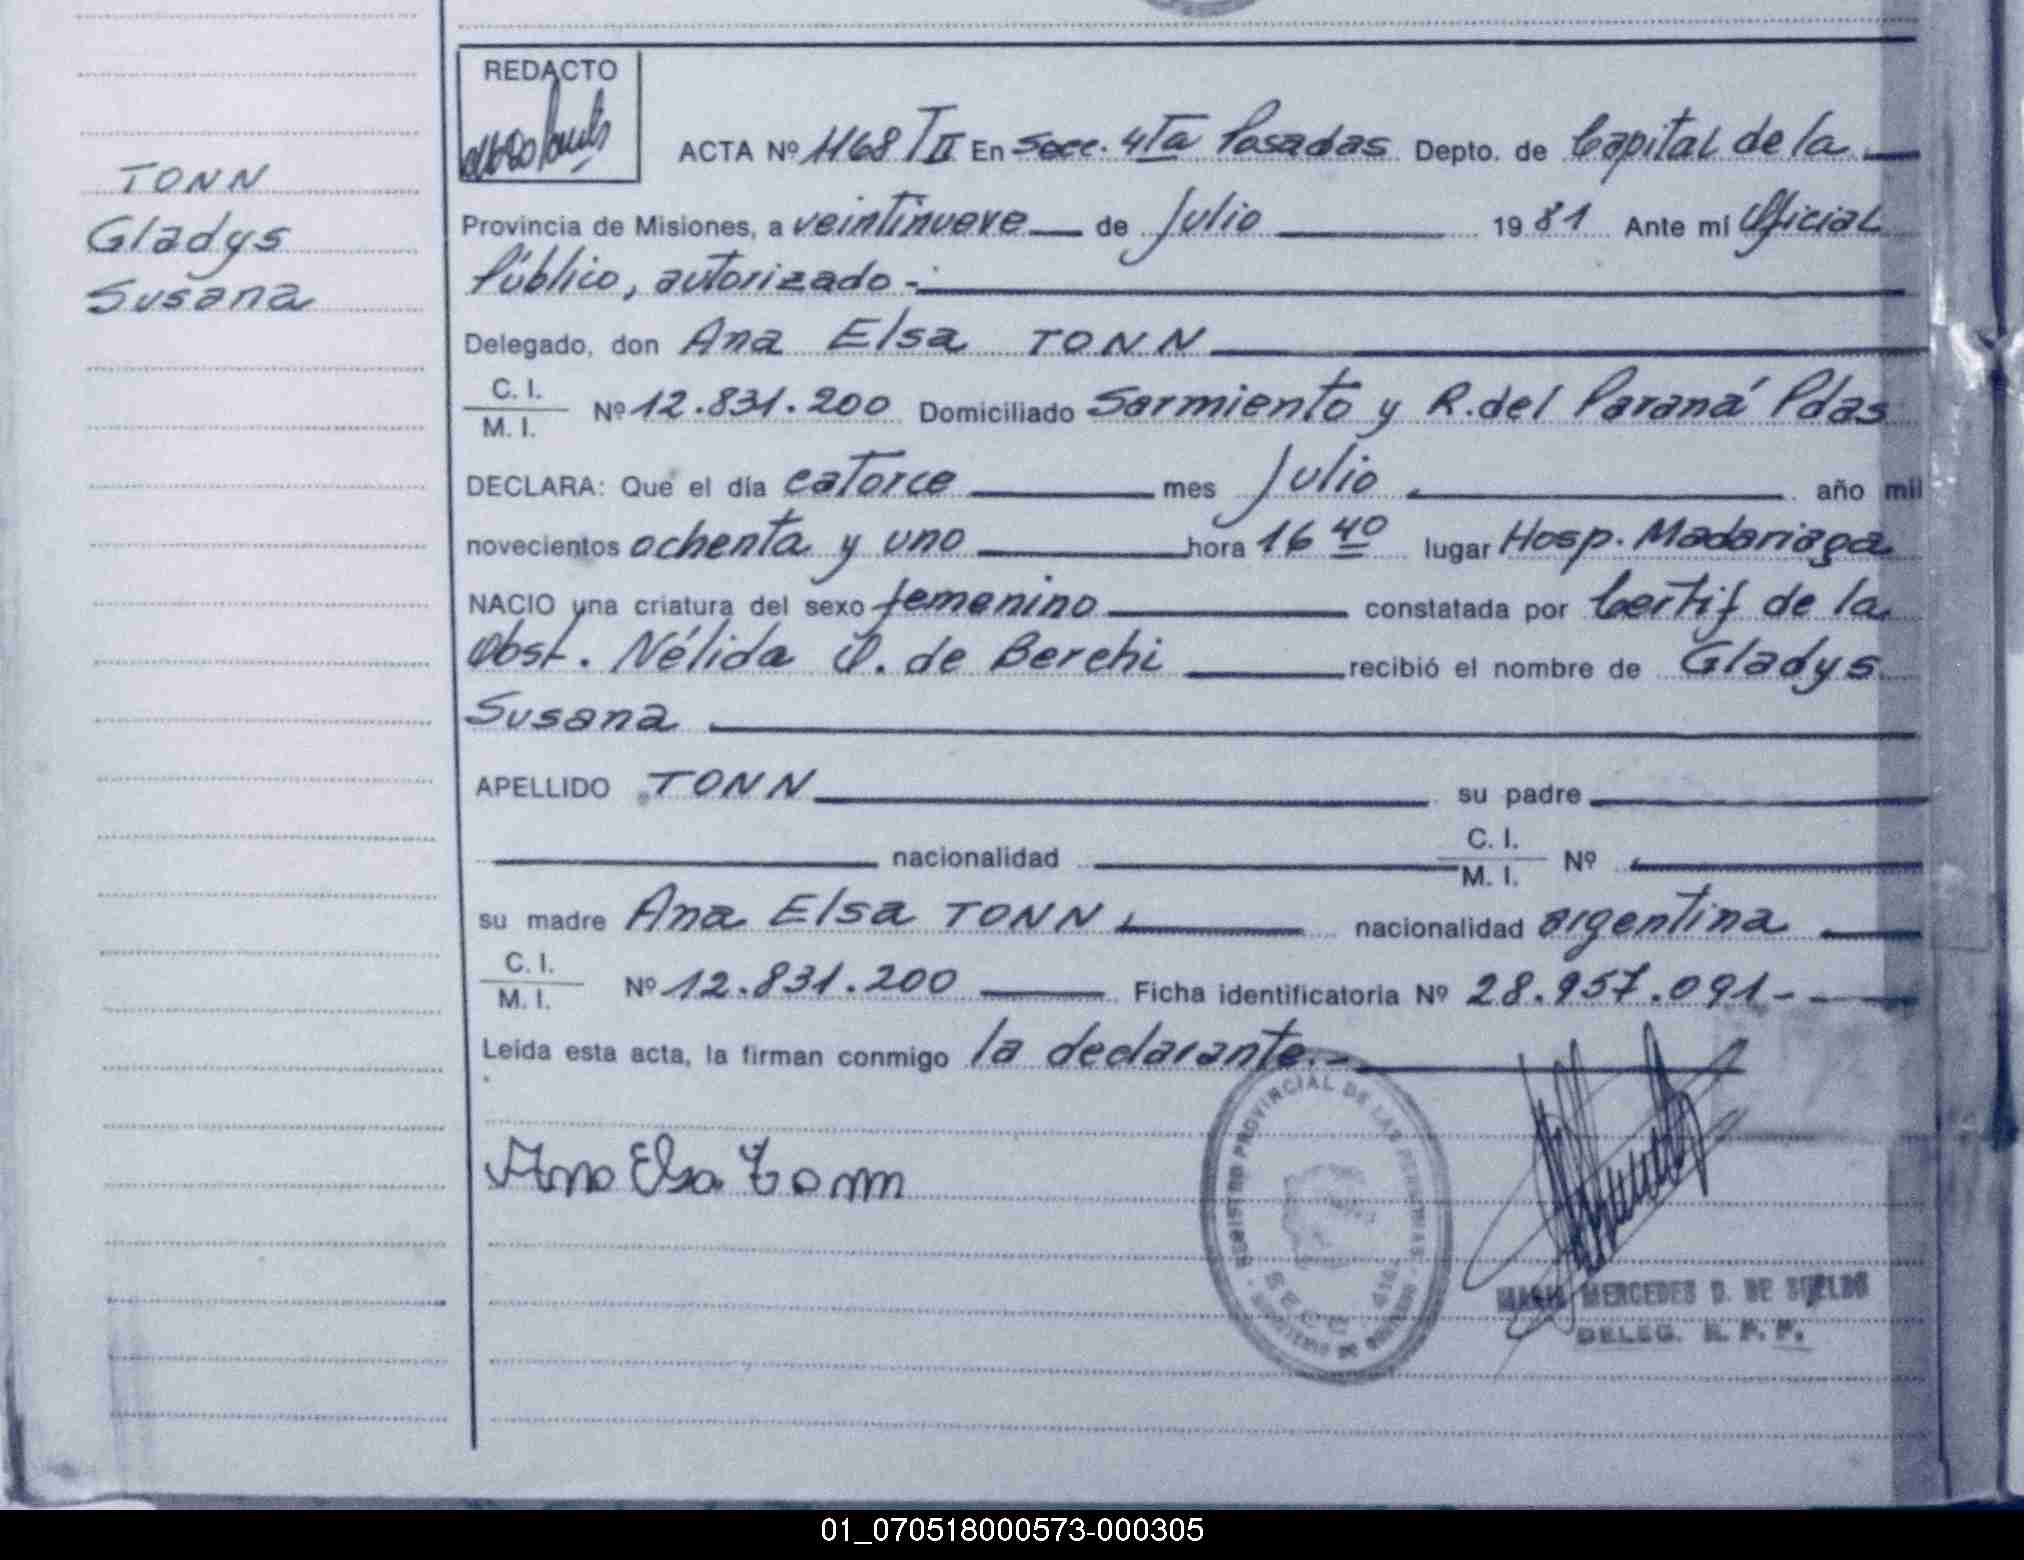 REDACTO
ACTA Nº 1168 TII En Secc. 4Ta Posadas Depto. de Capital de la
TONN
Gladys
Susana
Provincia de Misiones, a veintinueve de Julio 1981 Ante mí Oficial
Público, autorizado.-
Delegado, don Ana Elsa TONN
C. I.
M. I.
Nº 12.831.200 Domiciliado Sarmiento y R. del Paraná Pdas
DECLARA: Que el día catorce mes Julio año mil
novecientos ochenta y uno hora 16 40 lugar Hosp. Madariaga
NACIO una criatura del sexo femenino constatada por Certif de la
Obst. Nélida de Berchi recibió el nombre de Gladys
Susana
APELLIDO TONN su padre
nacionalidad C. I. M. I. Nº
su madre Ana Elsa TONN nacionalidad argentina
C. I.
M. I.
Nº 12.831.200 Ficha identificatoria Nº 28.957.091-
Leída esta acta, la firman conmigo la declarante.-
REGISTRO PROVINCIAL DE LAS PERSONAS
Ana Elsa Tonn
MERCEDES D. DE SUELDO
DELEG. R. P. P.
01_070518000573-000305